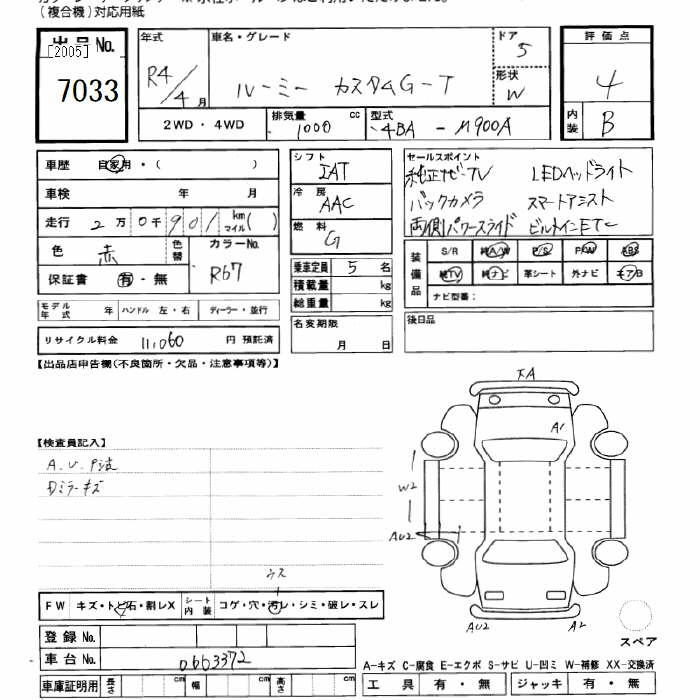 (複合機)対応用紙
出品No.
[2005]
7033
年式 R4/4月
車名・グレード ルーミー カスタムG-T
ドア 5
形状 W
評価点 4
内装 B
2WD・4WD
排気量 1000 cc
型式 4BA - M900A
車歴 自家用・( )
車検 年 月
走行 2万0千901 km マイル( )
色 赤 色替
カラーNo. R67
保証書 有・無
モデル年式 年 ハンドル 左・右 ディーラー・並行
リサイクル料金 11,060 円 預託済
シフト IAT
冷房 AAC
燃料 G
乗車定員 5名
積載量 kg
総重量 kg
名変期限 月 日
セールスポイント
純正ナビ・TV LEDヘッドライト
バックカメラ スマートアシスト
両側パワースライド ビルトインETC
装備品
S/R 純A/W P/S P/W ABS
純TV 純ナビ 革シート 外ナビ エアB
ナビ型番:
後日品
【出品店申告欄(不良箇所・欠品・注意事項等)】
【検査員記入】
A.U.P波
Dミラーキズ
天A
A1
W2
AU2
AU2
A2
スペア
FW キズ・トビ石・割レX
シート内装 コゲ・穴・汚レ・シミ・破レ・スレ
ウス
登録No.
車台No. 0663372
車庫証明用 長さ cm 幅 cm 高さ cm
A-キズ C-腐食 E-エクボ S-サビ U-凹ミ W-補修 XX-交換済
工具 有・無 ジャッキ 有・無